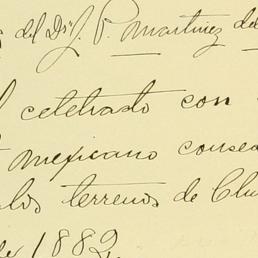 del Dr. J. P. Martinez del
celebrado con
mexicano conse
los terrenos de Chi
de 1882.